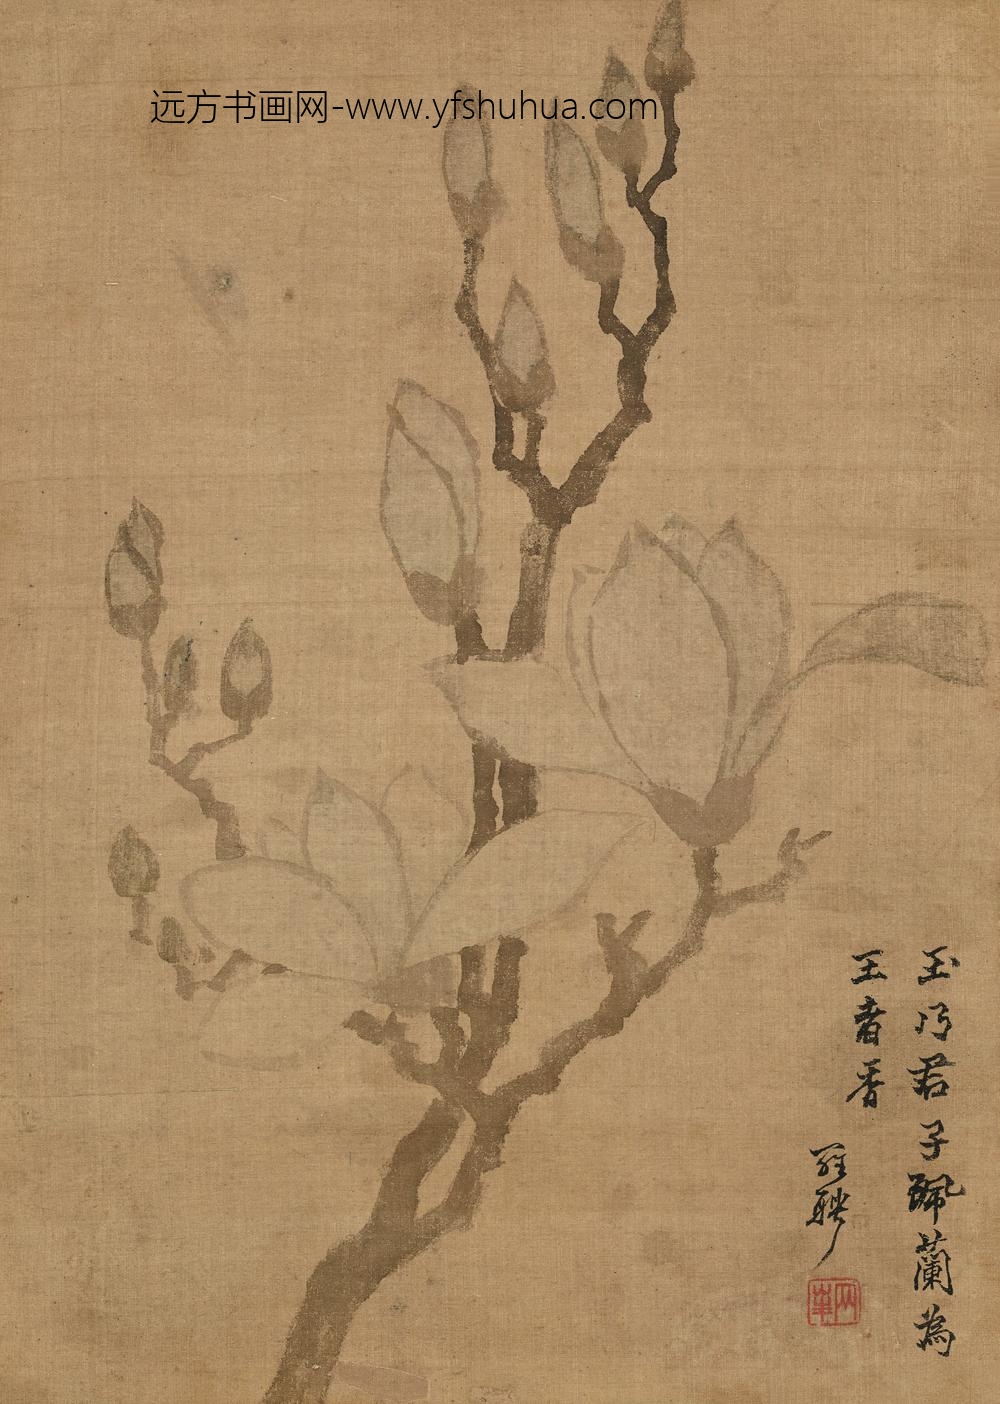 远方书画网-www.yfshuhua.com
玉乃君子珮蘭為
王者香
羅聘
兩峯